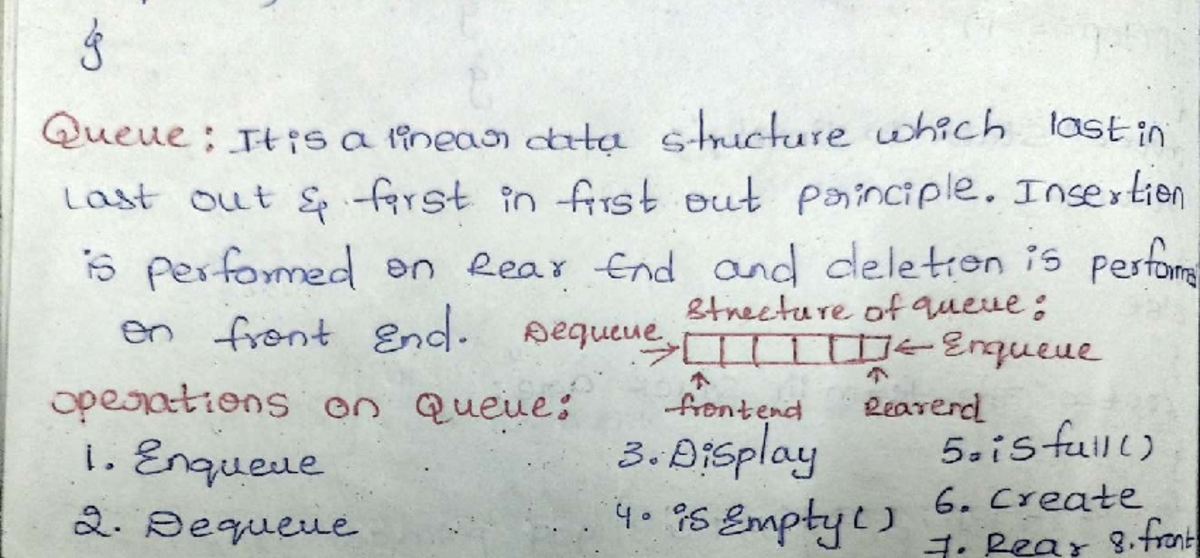 }
Queue: It is a linear data structure which last in
Last out & first in first out principle. Insertion
is performed on Rear End and deletion is performs
on front End.
Structure of queue:
Dequeue → ← Enqueue
↑ ↑
frontend Rearend
operations on Queue:
1. Enqueue 3. Display 5. isfull()
2. Dequeue 4. is Empty() 6. Create
7. Rear 8. front